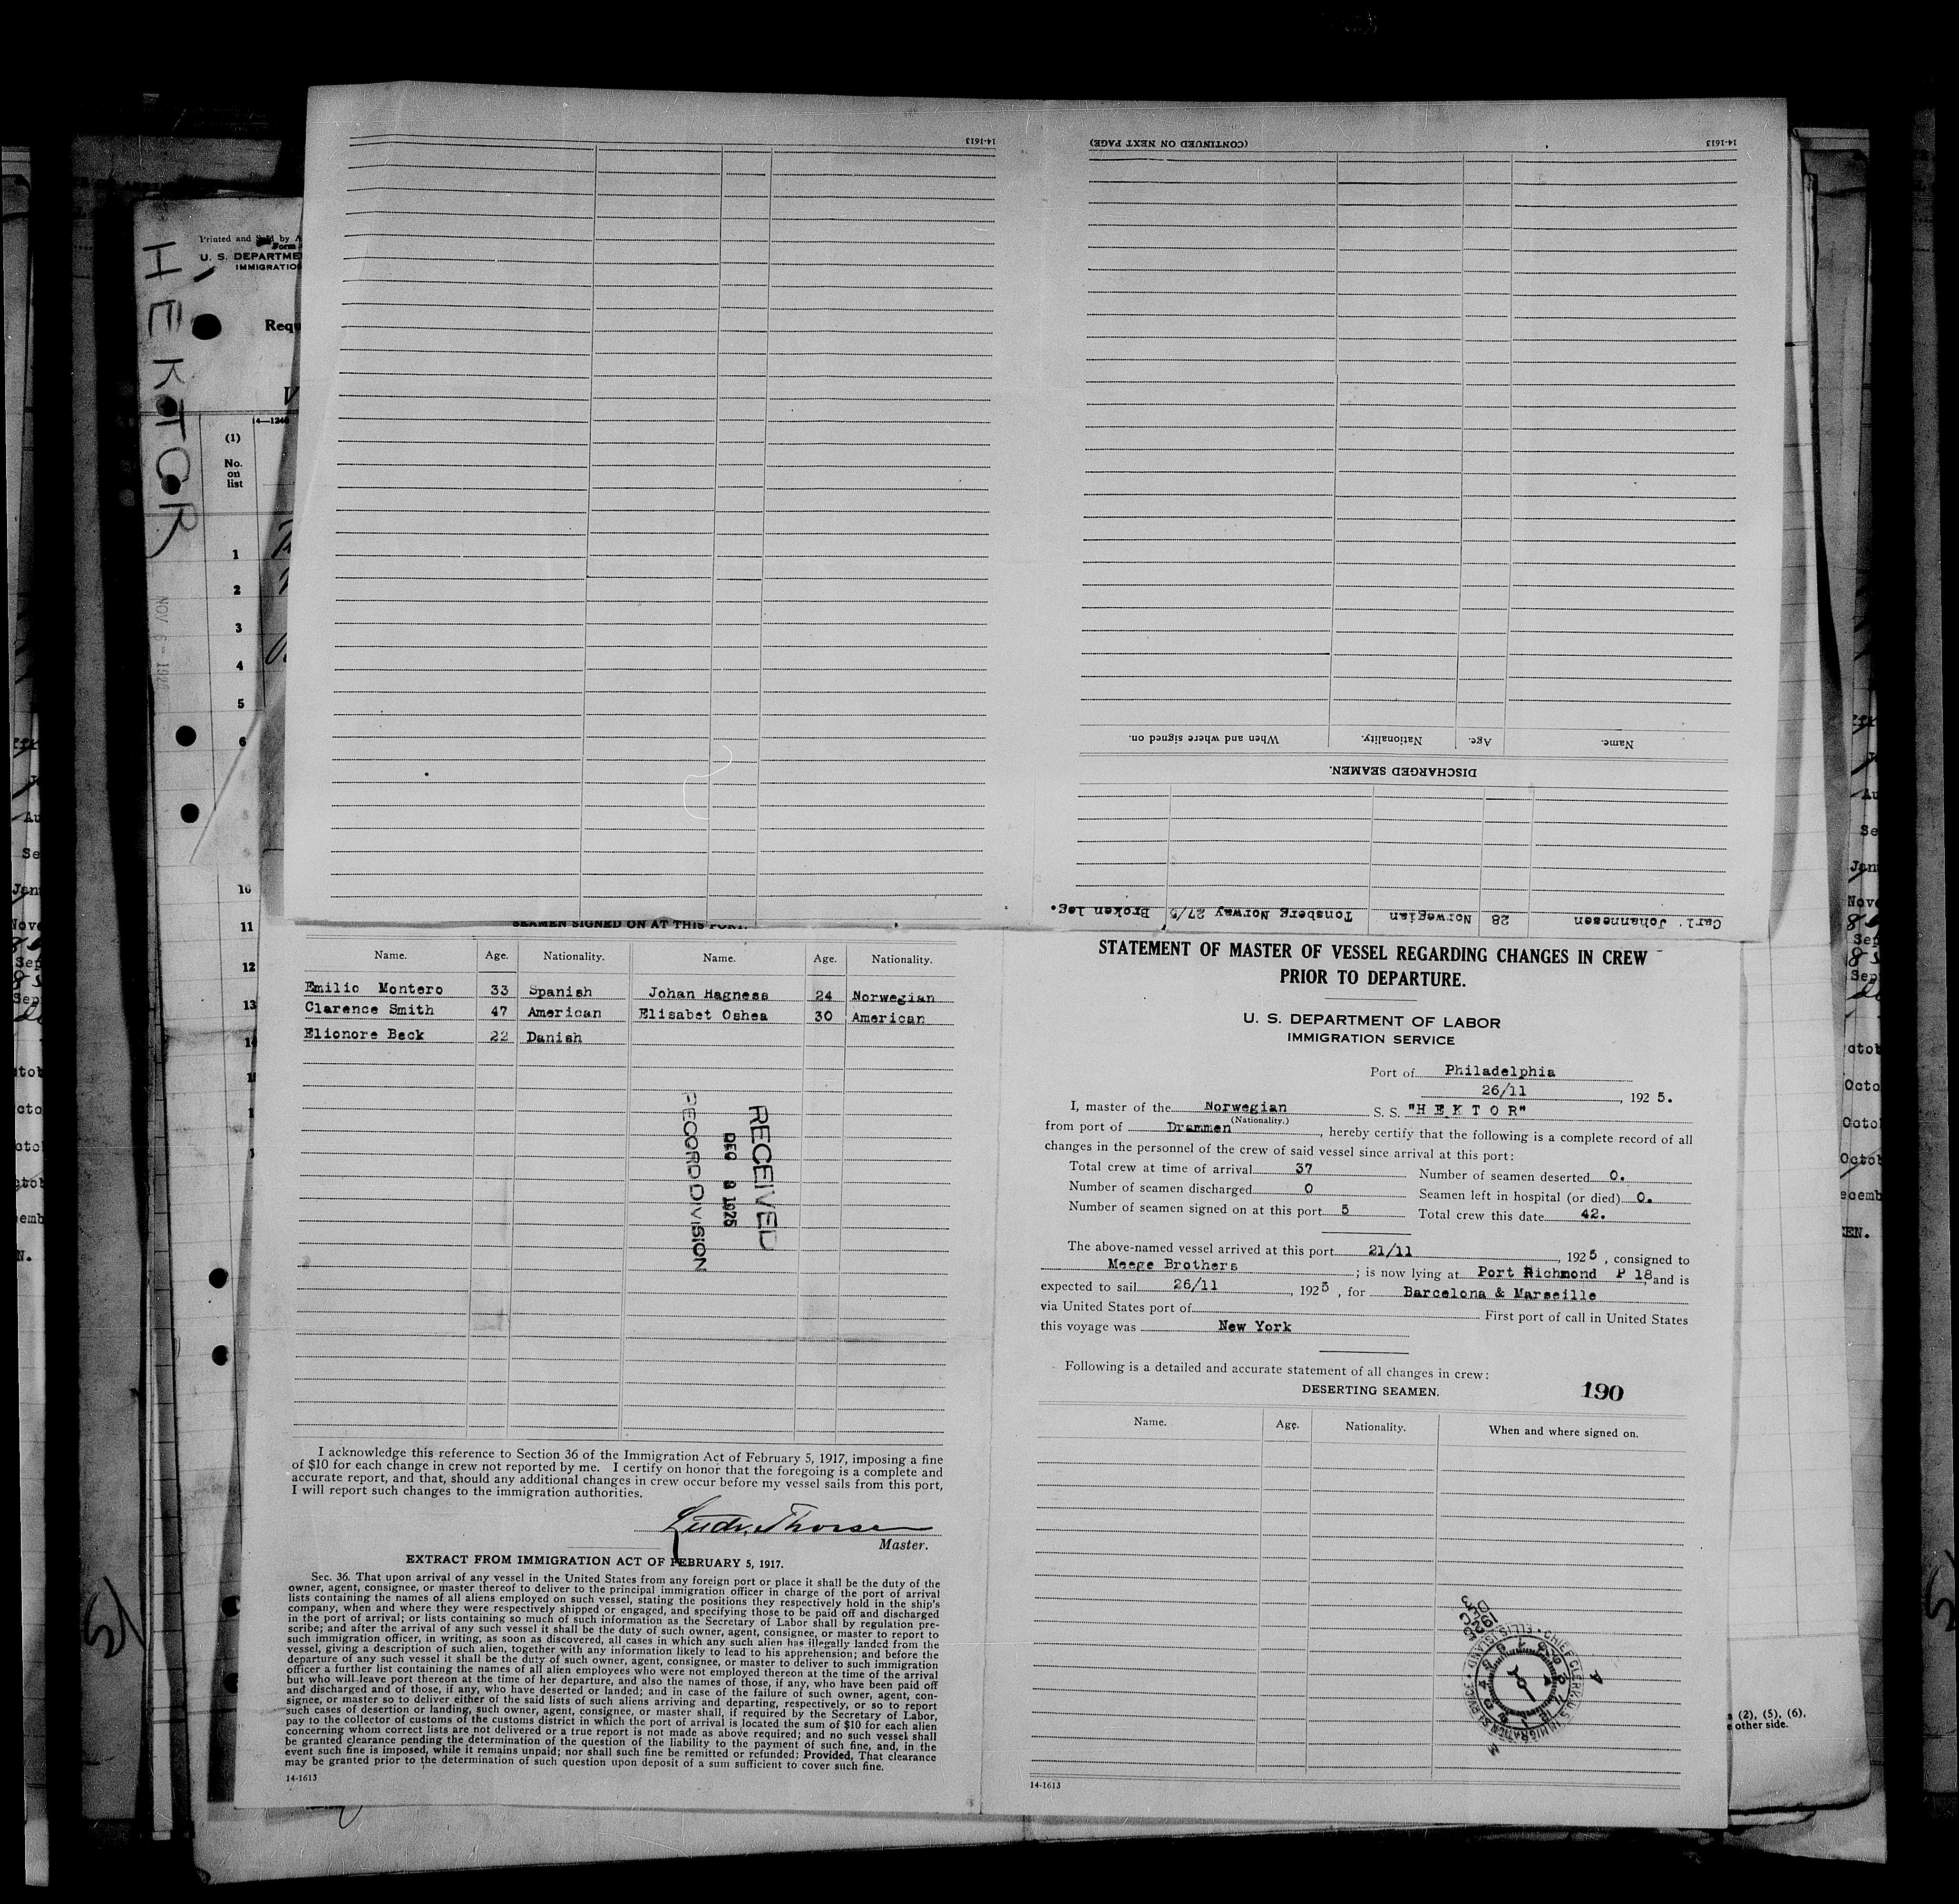 14-1613
(CONTINUED ON NEXT PAGE)
14-1613
When and where signed on.
Nationality.
Age.
Name.
DISCHARGED SEAMEN.
Carl Johannesen 28 Norwegian Tonsberg Norway 27/5 Broken leg.
HEKTOR
Printed and Sold by A
Form
U. S. DEPARTME
IMMIGRATIO
Requ
14—1240
(1)
No.
on
list
1
2
3
4
5
6
10
11
12
13
NOV 6 - 1925
SEAMEN SIGNED ON AT THIS PORT.
Name. Age. Nationality. Name. Age. Nationality.
Emilio Montero 33 Spanish Johan Hagness 24 Norwegian
Clarence Smith 47 American Elisabet Oshea 30 American
Elionore Beck 22 Danish
RECEIVED
DEC 3 1925
RECORD DIVISION
I acknowledge this reference to Section 36 of the Immigration Act of February 5, 1917, imposing a fine
of $10 for each change in crew not reported by me. I certify on honor that the foregoing is a complete and
accurate report, and that, should any additional changes in crew occur before my vessel sails from this port,
I will report such changes to the immigration authorities.
Ludv. Thorsen
Master.
EXTRACT FROM IMMIGRATION ACT OF FEBRUARY 5, 1917.
Sec. 36. That upon arrival of any vessel in the United States from any foreign port or place it shall be the duty of the
owner, agent, consignee, or master thereof to deliver to the principal immigration officer in charge of the port of arrival
lists containing the names of all aliens employed on such vessel, stating the positions they respectively hold in the ship's
company, when and where they were respectively shipped or engaged, and specifying those to be paid off and discharged
in the port of arrival; or lists containing so much of such information as the Secretary of Labor shall by regulation pre-
scribe; and after the arrival of any such vessel it shall be the duty of such owner, agent, consignee, or master to report to
such immigration officer, in writing, as soon as discovered, all cases in which any such alien has illegally landed from the
vessel, giving a description of such alien, together with any information likely to lead to his apprehension; and before the
departure of any such vessel it shall be the duty of such owner, agent, consignee, or master to deliver to such immigration
officer a further list containing the names of all alien employees who were not employed thereon at the time of the arrival
but who will leave port thereon at the time of her departure, and also the names of those, if any, who have been paid off
and discharged and of those, if any, who have deserted or landed; and in case of the failure of such owner, agent, con-
signee, or master so to deliver either of the said lists of such aliens arriving and departing, respectively, or so to report
such cases of desertion or landing, such owner, agent, consignee, or master shall, if required by the Secretary of Labor,
pay to the collector of customs of the customs district in which the port of arrival is located the sum of $10 for each alien
concerning whom correct lists are not delivered or a true report is not made as above required; and no such vessel shall
be granted clearance pending the determination of the question of the liability to the payment of such fine, and, in the
event such fine is imposed, while it remains unpaid; nor shall such fine be remitted or refunded; Provided, That clearance
may be granted prior to the determination of such question upon deposit of a sum sufficient to cover such fine.
14-1613
STATEMENT OF MASTER OF VESSEL REGARDING CHANGES IN CREW
PRIOR TO DEPARTURE.
U. S. DEPARTMENT OF LABOR
IMMIGRATION SERVICE
Port of Philadelphia
26/11, 192 5.
I, master of the Norwegian S. S. "H E K T O R"
(Nationality.)
from port of Drammen, hereby certify that the following is a complete record of all
changes in the personnel of the crew of said vessel since arrival at this port:
Total crew at time of arrival 37 Number of seamen deserted 0.
Number of seamen discharged 0 Seamen left in hospital (or died) 0.
Number of seamen signed on at this port 5 Total crew this date 42.
The above-named vessel arrived at this port 21/11, 192 5, consigned to
Meege Brothers; is now lying at Port Richmond P 18, and is
expected to sail 26/11, 192 5, for Barcelona & Marseille
via United States port of First port of call in United States
this voyage was New York
Following is a detailed and accurate statement of all changes in crew:
DESERTING SEAMEN. 190
Name. Age. Nationality. When and where signed on.
14-1613
(2), (5), (6),
other side.